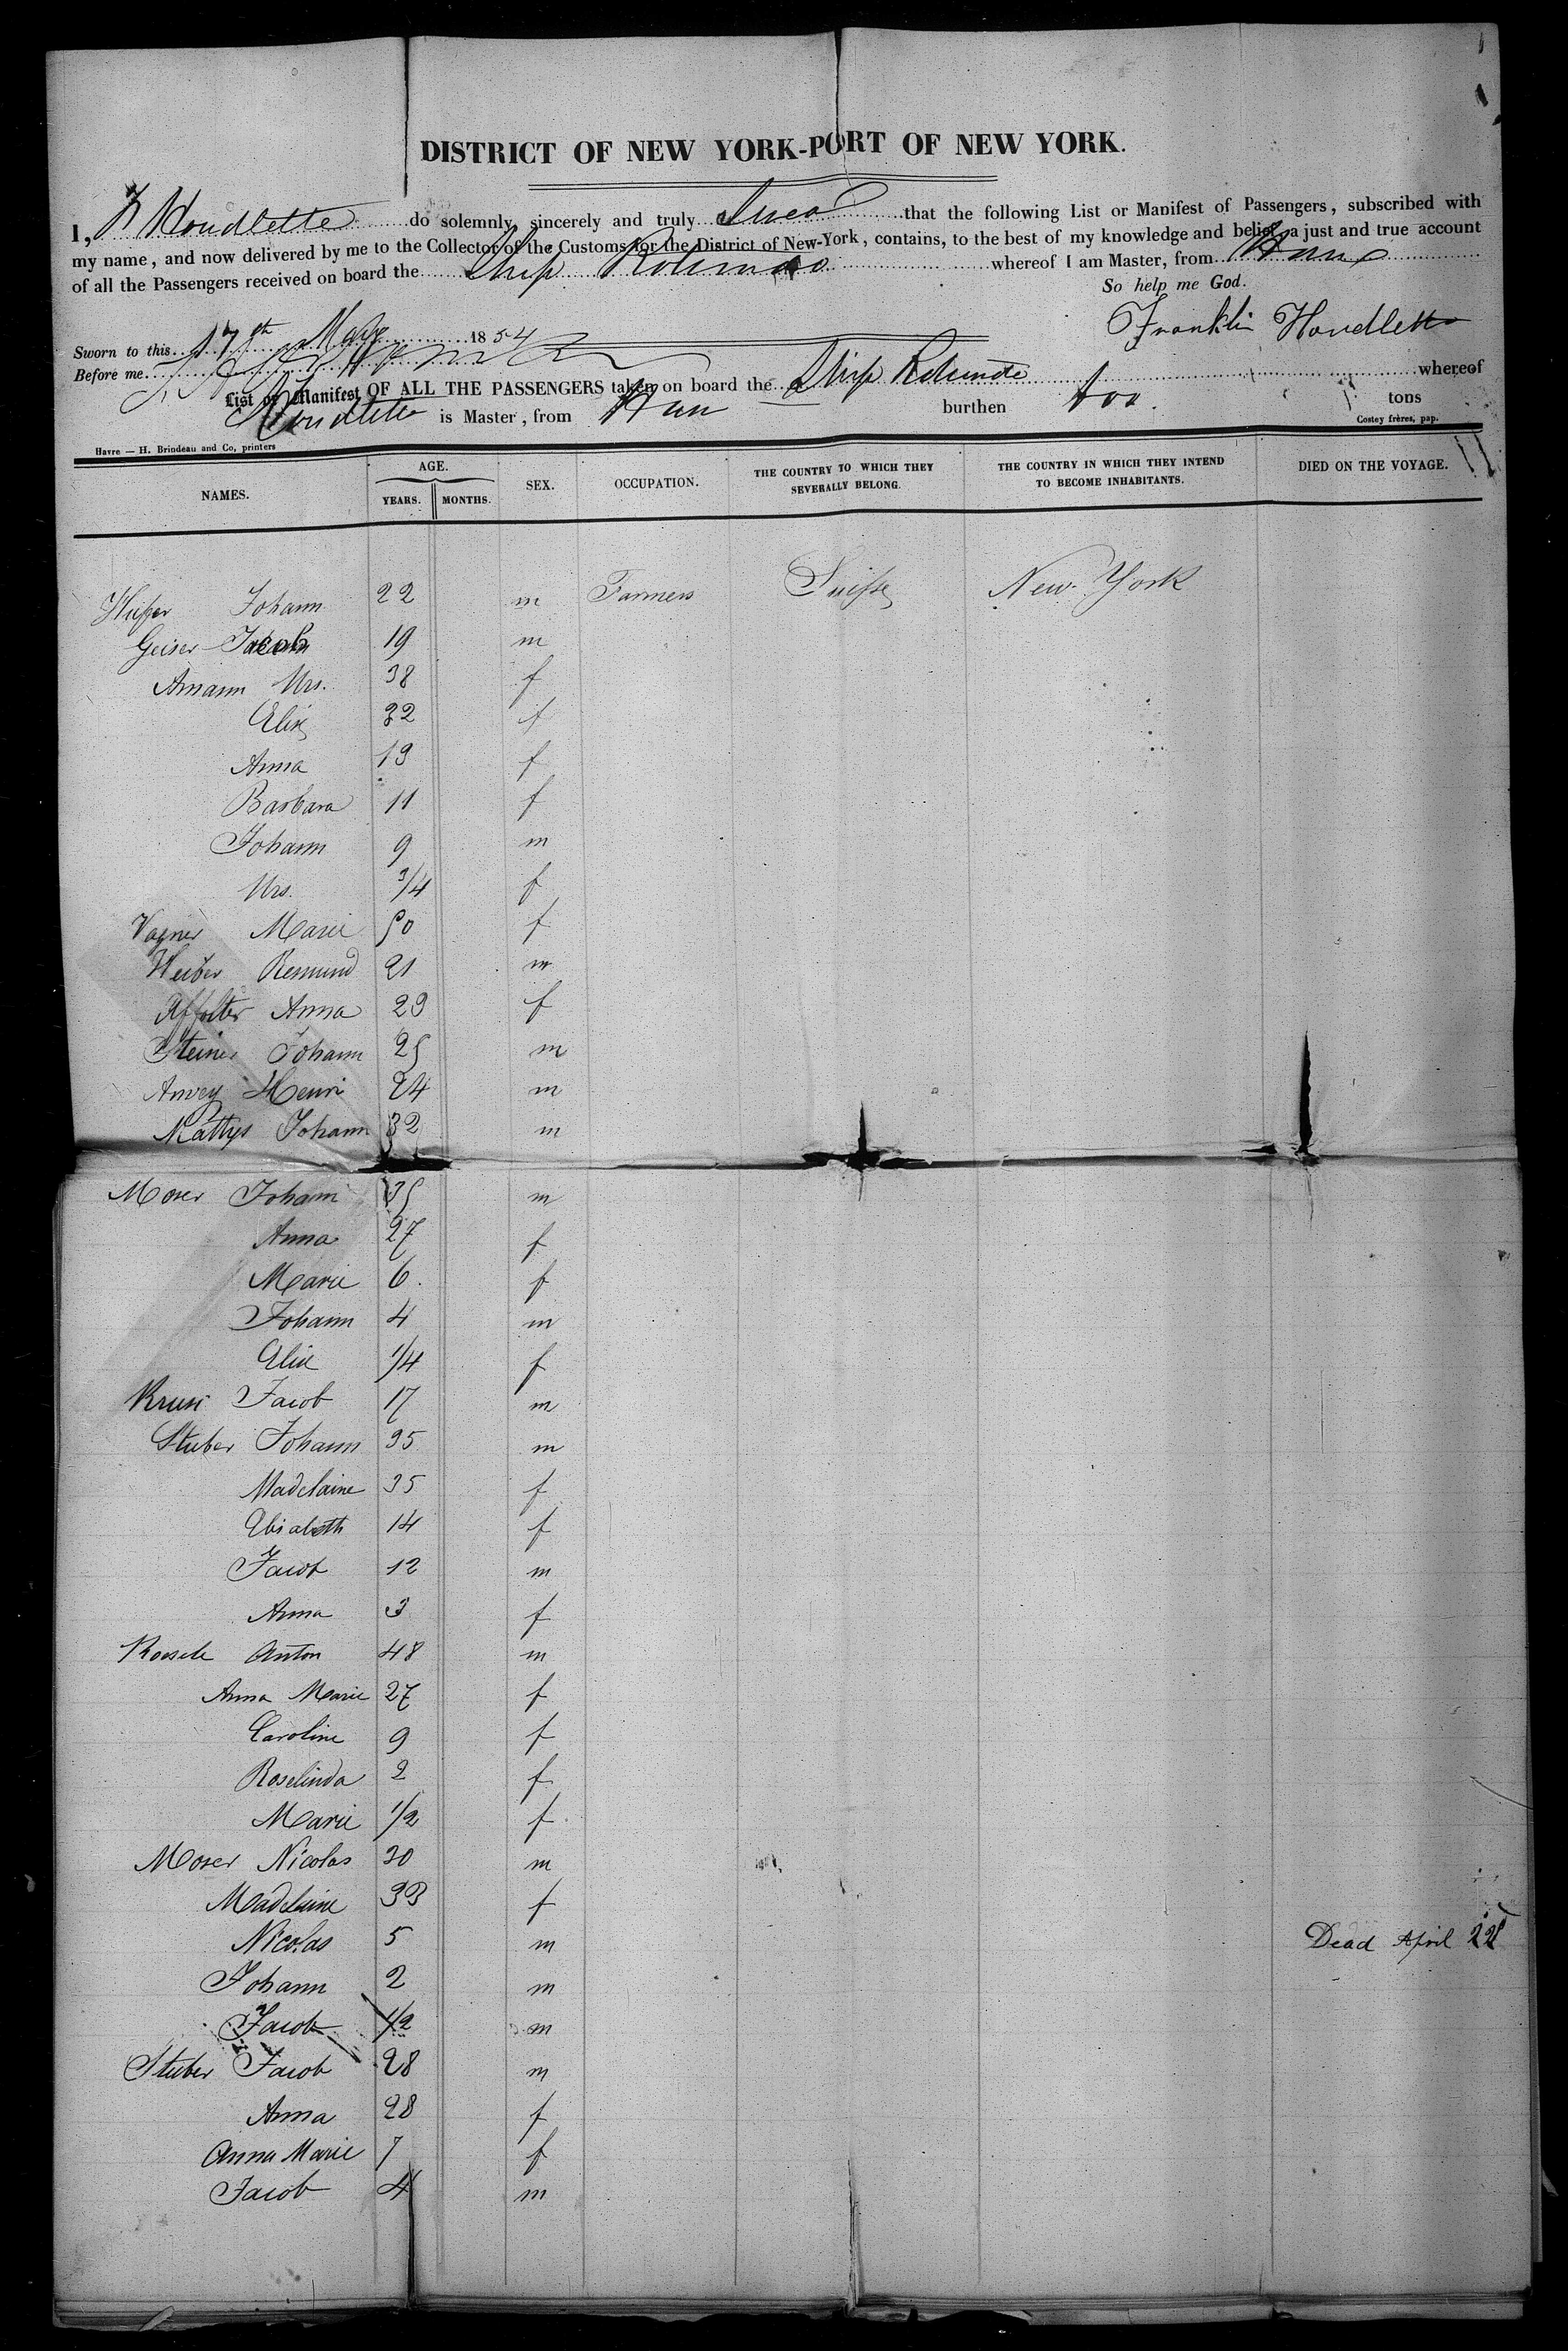 DISTRICT OF NEW YORK-PORT OF NEW YORK.
I, F Houdlette do solemnly, sincerely and truly Swear that the following List or Manifest of Passengers, subscribed with
my name, and now delivered by me to the Collector of the Customs for the District of New-York, contains, to the best of my knowledge and belief, a just and true account
of all the Passengers received on board the Ship whereof I am Master, from Havre
So help me God.
Franklin Houdlette
Sworn to this 17th May 1854
Before me
List or Manifest OF ALL THE PASSENGERS taken on board the Ship whereof
Houdlette is Master, from burthen tons
Havre — H. Brindeau and Co, printers Costey frères, pap.
NAMES. AGE. YEARS. MONTHS. SEX. OCCUPATION. THE COUNTRY TO WHICH THEY SEVERALLY BELONG. THE COUNTRY IN WHICH THEY INTEND TO BECOME INHABITANTS. DIED ON THE VOYAGE.
Johann 22 m Farmers Suisse New-York
Geiser Jacob 19 m
Amann Urs. 38 f
Elise 32 f
Anna 13 f
Barbara 11 f
Johann 9 m
Urs. 3/4 f
Vagner Marie 50 f
Weiber 21 m
Affolter Anna 29 f
Steiner Johann 25 m
Henri 24 m
Mattys Johann 32 m
Moser Johann 35 m
Anna 27 f
Marie 6. f
Johann 4 m
Elise 1/4 f
Krusi Jacob 17 m
Stuber Johann 35 m
Madelaine 35 f
Elisabeth 14 f
Jacob 12 m
Anna 3 f
Anton 48 m
Anna Marie 27 f
Caroline 9 f
Roselinda 2 f
Marie 1/2 f
Moser Nicolas 30 m
Madelaine 33 f
Nicolas 5 m Dead April 22
Johann 2 m
Jacob 1/2 m
Stuber Jacob 28 m
Anna 28 f
Anna Marie 7 f
Jacob 4 m